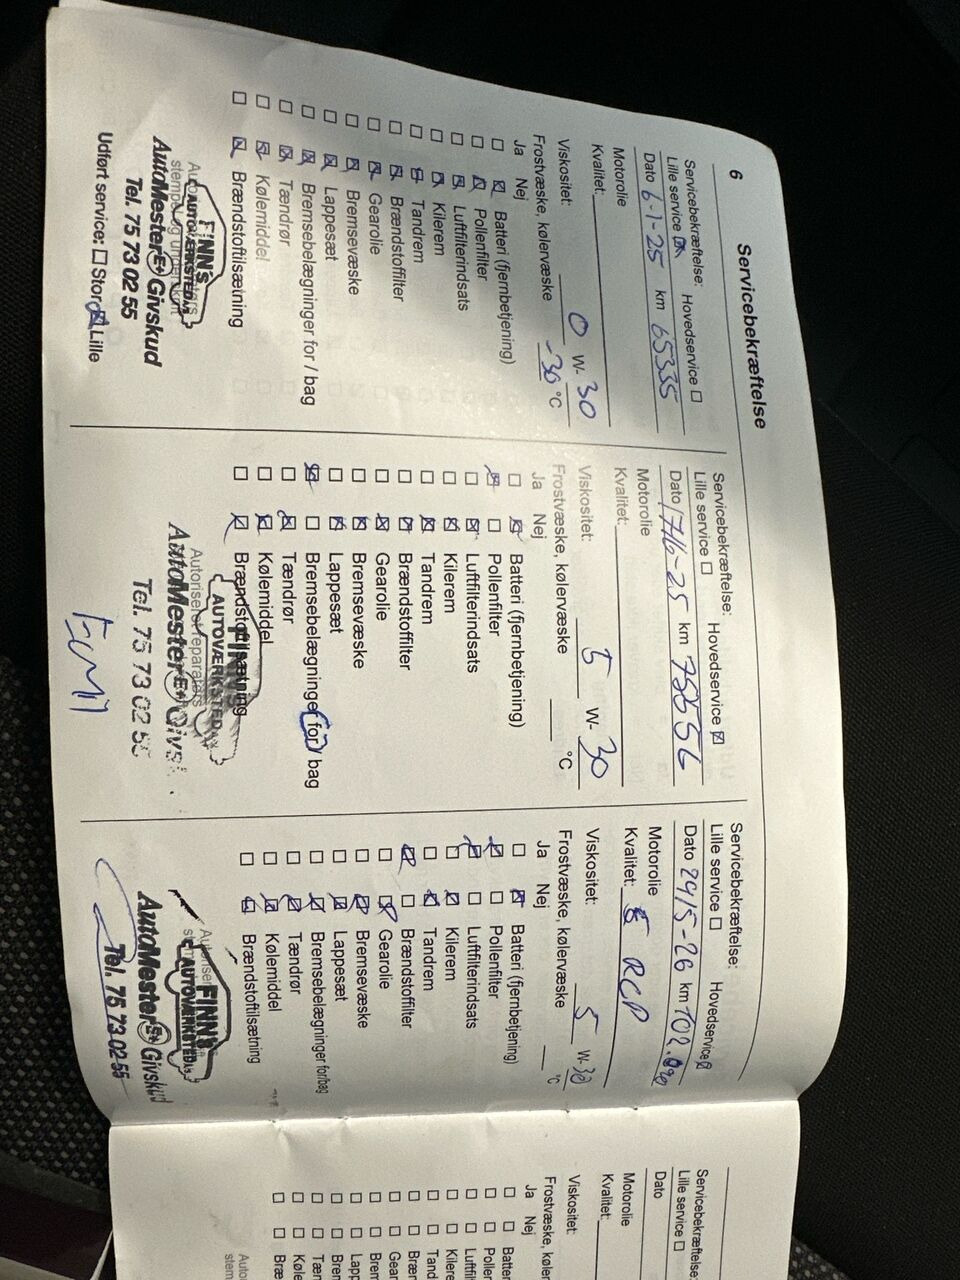 6
Servicebekræftelse
Servicebekræftelse:
Lille service ☒ Hovedservice ☐
Dato 6-1-25 km 65335
Motorolie
Kvalitet:
Viskositet: 0 W- 30
Frostvæske, kølervæske -30 °C
Ja Nej
☐ ☒ Batteri (fjernbetjening)
☐ ☒ Pollenfilter
☐ ☒ Luftfilterindsats
☐ ☒ Kilerem
☐ ☒ Tandrem
☐ ☒ Brændstoffilter
☐ ☒ Gearolie
☐ ☒ Bremsevæske
☐ ☒ Lappesæt
☐ ☒ Bremsebelægninger for / bag
☐ ☒ Tændrør
☐ ☒ Kølemiddel
☐ ☒ Brændstoftilsætning
FINN'S
AUTOVÆRKSTED
AutoMester Givskud
Tel. 75 73 02 55
Udført service: ☐ Stor ☒ Lille
Servicebekræftelse:
Lille service ☐ Hovedservice ☒
Dato 17/6-25 km
Motorolie
Kvalitet:
Viskositet: 5 W- 30
Frostvæske, kølervæske °C
Ja Nej
☐ ☒ Batteri (fjernbetjening)
☒ ☐ Pollenfilter
☐ ☒ Luftfilterindsats
☐ ☒ Kilerem
☐ ☒ Tandrem
☐ ☒ Brændstoffilter
☐ ☒ Gearolie
☐ ☒ Bremsevæske
☐ ☒ Lappesæt
☒ ☐ Bremsebelægninger for / bag
☐ ☒ Tændrør
☐ ☒ Kølemiddel
☐ ☒ Brændstoftilsætning
Autoriseret reparatørs
FINN'S
AUTOVÆRKSTED
AutoMester Givs
Tel. 75 73 02 55
Emil
Servicebekræftelse:
Lille service ☐ Hovedservice ☒
Dato 29/5-26 km
Motorolie
Kvalitet: RCP
Viskositet: 5 W- 30
Frostvæske, kølervæske °C
Ja Nej
☐ ☒ Batteri (fjernbetjening)
☒ ☐ Pollenfilter
☒ ☐ Luftfilterindsats
☐ ☒ Kilerem
☐ ☒ Tandrem
☒ ☐ Brændstoffilter
☐ ☒ Gearolie
☐ ☒ Bremsevæske
☐ ☒ Lappesæt
☐ ☒ Bremsebelægninger for/bag
☐ ☒ Tændrør
☐ ☒ Kølemiddel
☐ ☒ Brændstoftilsætning
FINN'S
AUTOVÆRKSTED
AutoMester Givskud
Tel. 75 73 02 55
Servicebekræftelse:
Lille service ☐
Dato
Motorolie
Kvalitet:
Viskositet:
Frostvæske, køle
Ja Nej
☐ ☐ Batte
☐ ☐ Polle
☐ ☐ Luftfi
☐ ☐ Kilere
☐ ☐ Tand
☐ ☐ Bræn
☐ ☐ Gear
☐ ☐ Brem
☐ ☐ Lapp
☐ ☐ Brem
☐ ☐ Tæn
☐ ☐ Køle
☐ ☐ Bræ
Auto
stem